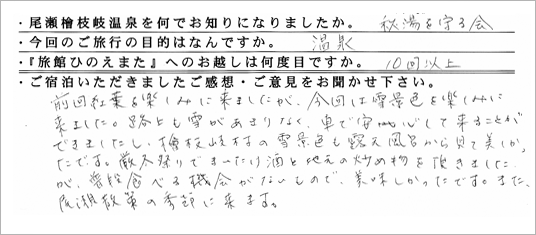 ・尾瀬檜枝岐温泉を何でお知りになりましたか。 秘湯を守る会
・今回のご旅行の目的はなんですか。 温泉
・『旅館ひのえまた』へのお越しは何度目ですか。 10回以上
・ご宿泊いただきましたご感想・ご意見をお聞かせ下さい。
前回紅葉を楽しみに来ましたが、今回は雪景色を楽しみに
来ました。路上も雪があまりなく、車で安心して来ることが
できましたし、檜枝岐村の雪景色も露天風呂から見て美しかっ
たです。厳太採りでまいたけ酒と地元の炒め物を頂きました
が、普段食べる機会がないもので、美味しかったです。また、
尾瀬散策の季節に来ます。